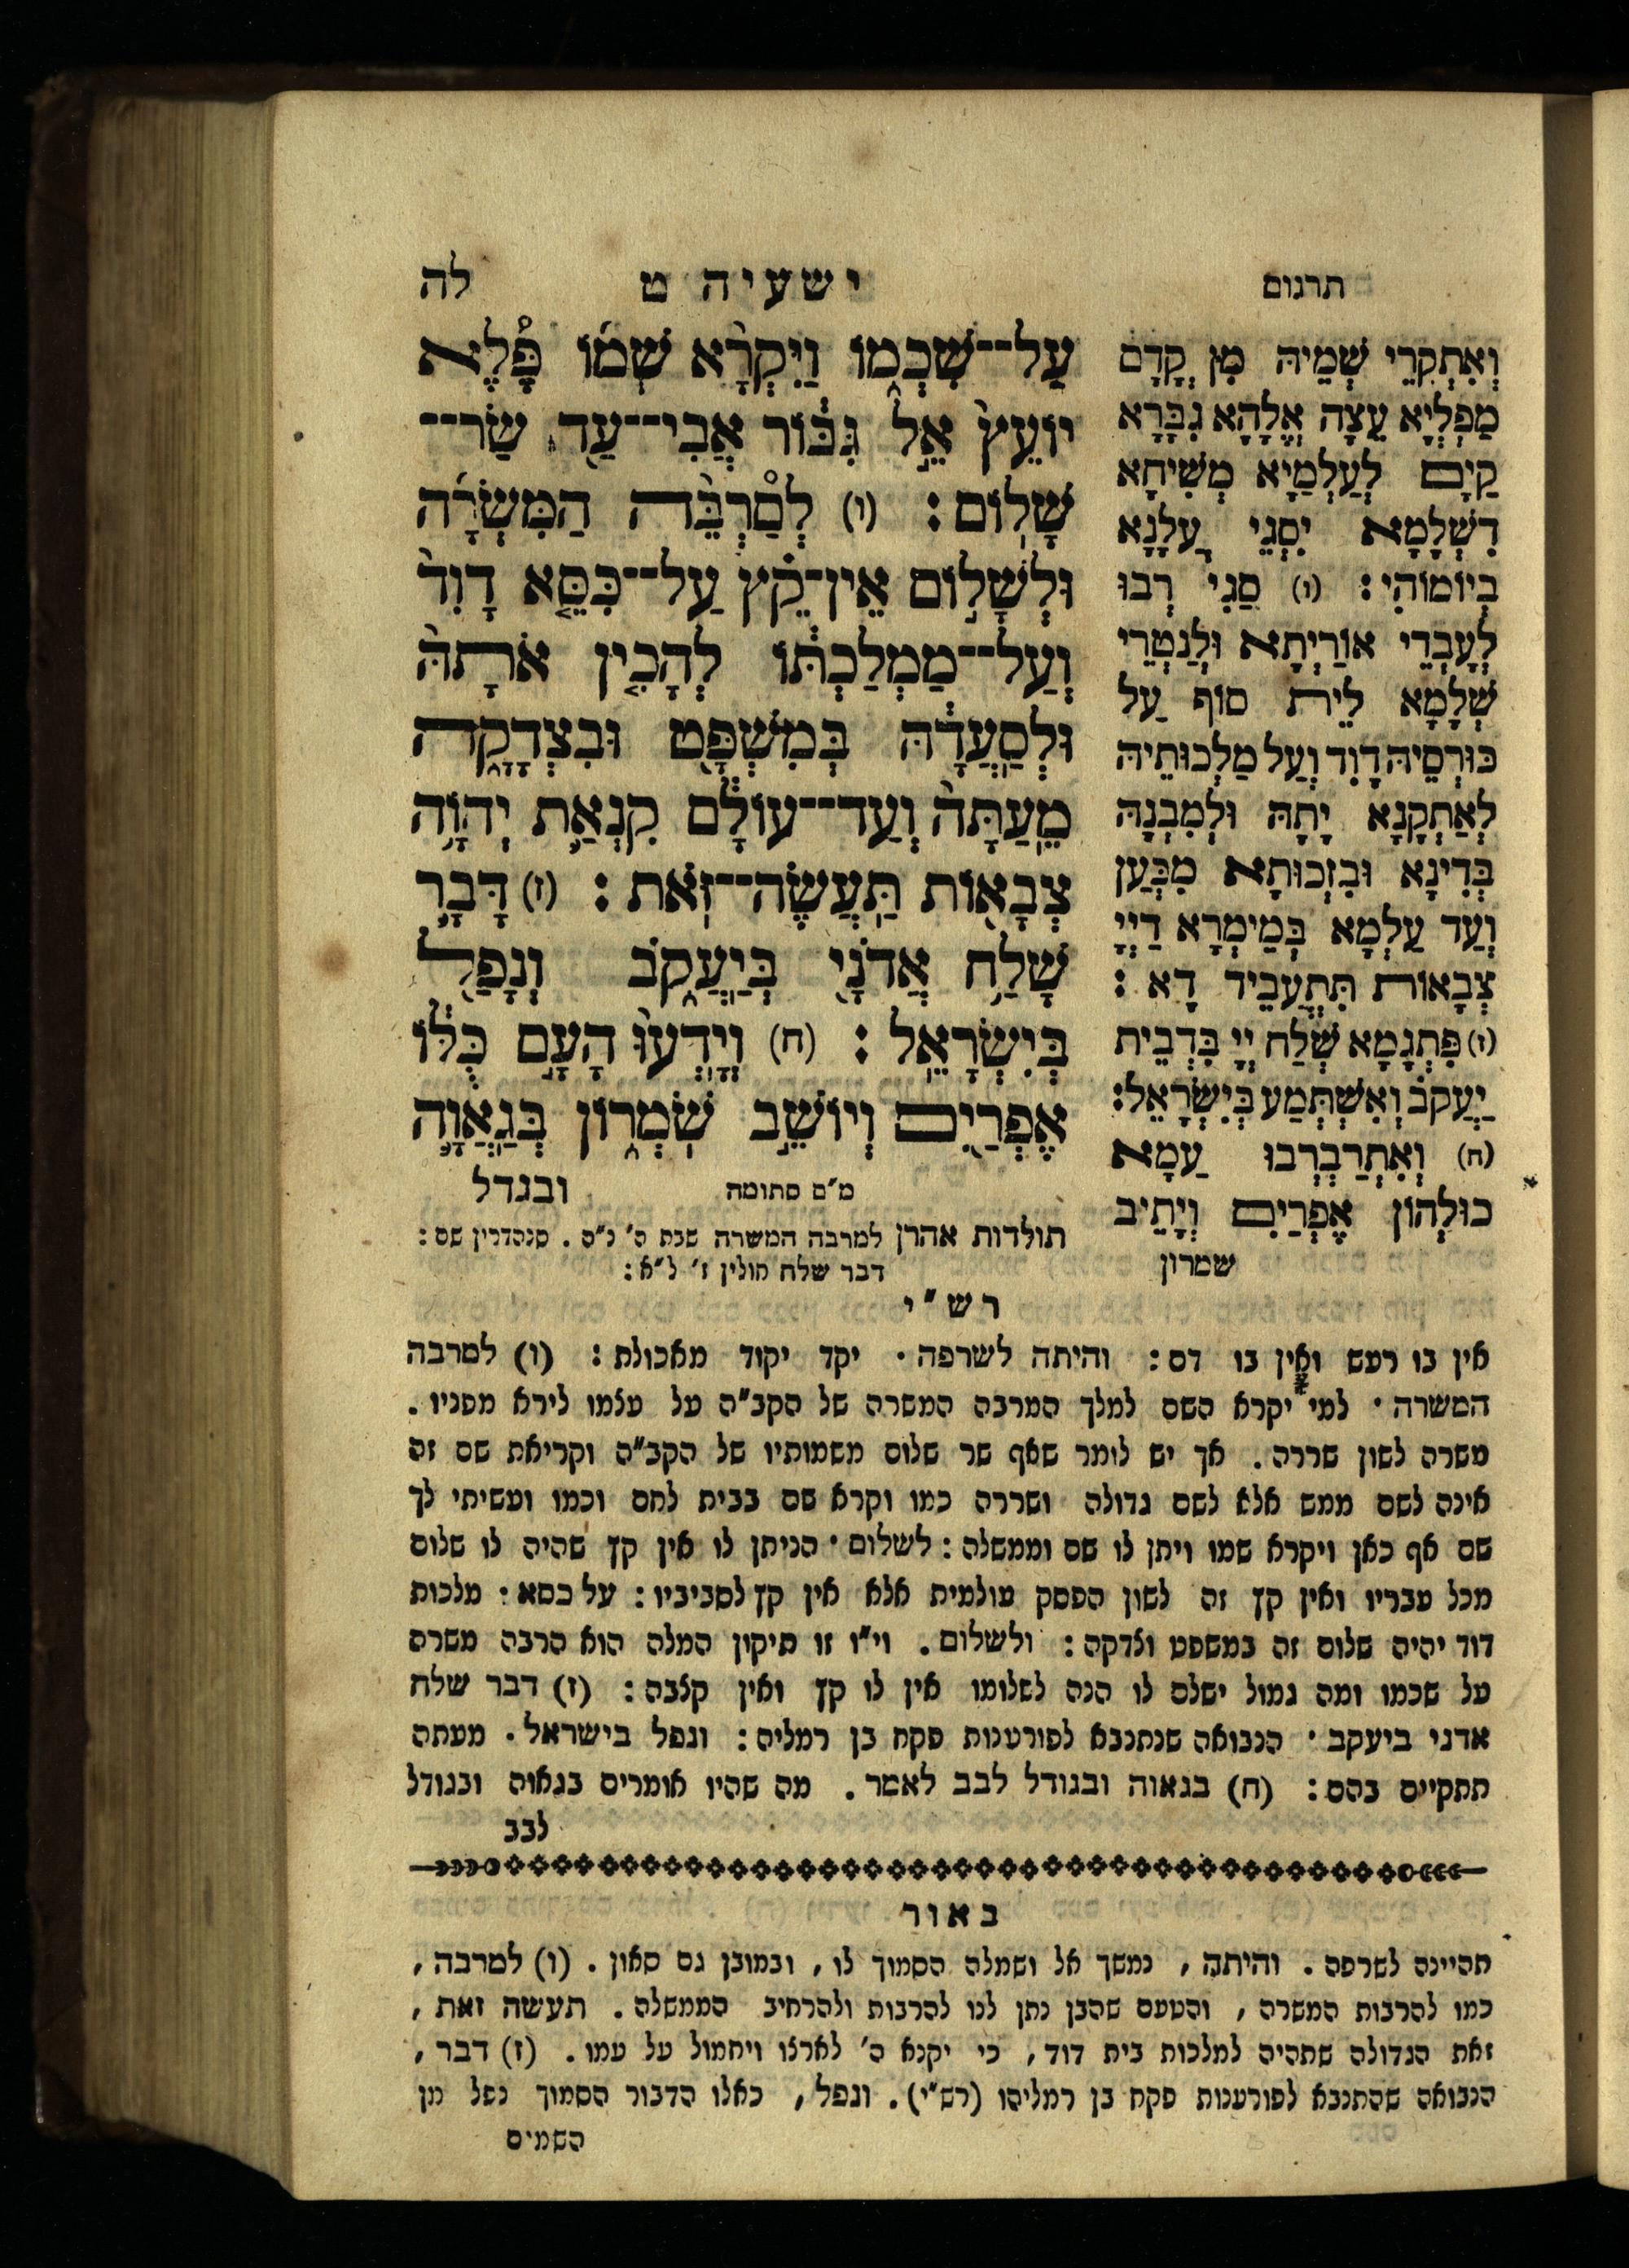 תרגום
ישעיה ט
לה
עַל־־שִׁכְמ֑וֹ וַיִּקְרָ֨א שְׁמ֜וֹ פֶּ֠לֶא
יוֹעֵץ֙ אֵ֣ל גִּבּ֔וֹר אֲבִי־־עַ֖ד שַׂר־־
שָׁלֽוֹם : (ו) לְםַרְבֵּ֨ה הַמִּשְׂרָ֜ה
וּלְשָׁל֣וֹם אֵֽין־קֵ֗ץ עַל־־כִּסֵּ֤א דָוִד֙
וְעַל־־מַמְלַכְתּ֔וֹ לְהָכִ֤ין אֹתָהּ֙
וּלְסַֽעֲדָ֔הּ בְּמִשְׁפָּ֖ט וּבִצְדָקָ֑ה
מֵֽעַתָּה֙ וְעַד־־עוֹלָ֔ם קִנְאַ֛ת יְהוָ֥ה
צְבָא֖וֹת תַּֽעֲשֶׂה־־זֹּֽאת : (ז) דָּבָ֛ר
שָׁלַ֥ח אֲדֹנָ֖י בְּיַֽעֲקֹ֑ב וְנָפַ֖ל
בְּיִשְׂרָאֵֽל : (ח) וְיָֽדְעוּ֙ הָעָ֣ם כֻּלּ֔וֹ
אֶפְרַ֖יִם וְיוֹשֵׁ֣ב שֹֽׁמְר֑וֹן בְּגַֽאֲוָ֛ה
מ״ם סתומה
ובגדל
וְאִתְקְרֵי שְׁמֵיהּ מִן קֳדָם
מַפְלְיָא עֵצָה אֱלָהָא גִבָּרָא
קַיָם לְעַלְמַיָא מְשִׁיחָא
דִשְׁלָמָא יִסְגֵי עֲלָנָא
בְיוֹמוֹהִי : (ו) סַגִי רְבוּ
לְעָבְדֵי אוֹרַיְתָא וּלְנַטְרֵי
שְׁלָמָא לֵית סוֹף עַל
כּוּרְסֵיהּ דָוִד וְעַל מַלְכוּתֵיהּ
לְאַתְקָנָא יָתָהּ וּלְמִבְנָהּ
בְּדִינָא וּבִזְכוּתָא מִכְּעַן
וְעַד עַלְמָא בְּמֵימְרָא דַיְיָ
צְבָאוֹת תִּתְעֲבֵיד דָא :
(ז) פִּתְגָמָא שְׁלַח יְיָ בִּדְבֵית
יַעֲקֹב וְאִשְׁתְּמַע בְּיִשְׂרָאֵל:
(ח) וְאִתְרַבְרְבוּ עַמָא
כּוּלְהוֹן אֶפְרַיִם וְיָתֵיב
שמרון
תולדות אהרן למרבה המשרה שבת ה׳ נ״ה . סנהדרין שם :
דבר שלח חולין ז׳ ל״א :
רש״י
אין בו רעש ואין בו דם : והיתה לשרפה · יקד יקוד מאכולת : (ו) למרבה
המשרה · למי יקרא השם למלך המרבה המשרה של הקב״ה על עצמו לירא מפניו .
משרה לשון שררה . אך יש לומר שאף שר שלום משמותיו של הקב״ה וקריאת שם זה
אינה לשם ממש אלא לשם גדולה ושררה כמו וקרא שם בבית לחם וכמו ועשיתי לך
שם אף כאן ויקרא שמו ויתן לו שם וממשלה : לשלום · הניתן לו אין קץ שהיה לו שלום
מכל עבריו ואין קץ זה לשון הפסק עולמית אלא אין קץ לסביביו : על כסא · מלכות
דוד יהיה שלום זה במשפט וצדקה : ולשלום . וי״ו זו תיקון המלה הוא הרבה משרה
על שכמו ומה גמול ישלם לו הנה לשלומו אין לו קץ ואין קצבה : (ז) דבר שלח
אדני ביעקב · הנבואה שנתנבא לפורענות פקח בן רמליה : ונפל בישראל · מעתה
תתקיים בהם : (ח) בגאוה ובגודל לבב לאמר . מה שהיו אומרים בגאוה ובגודל
לבב
באור
תהיינה לשרפה . והיתה , נמשך אל ושמלה הסמוך לו , ובמובן גם סאון . (ו) למרבה ,
כמו להרבות המשרה , והטעם שהבן נתן לנו להרבות ולהרחיב הממשלה . תעשה זאת ,
זאת הגדולה שתהיה למלכות בית דוד , כי יקנא ה׳ לארצו ויחמול על עמו . (ז) דבר ,
הנבואה שהתנבא לפורענות פקח בן רמליהו (רש״י) . ונפל , כאלו הדבור הסמוך נפל מן
השמים